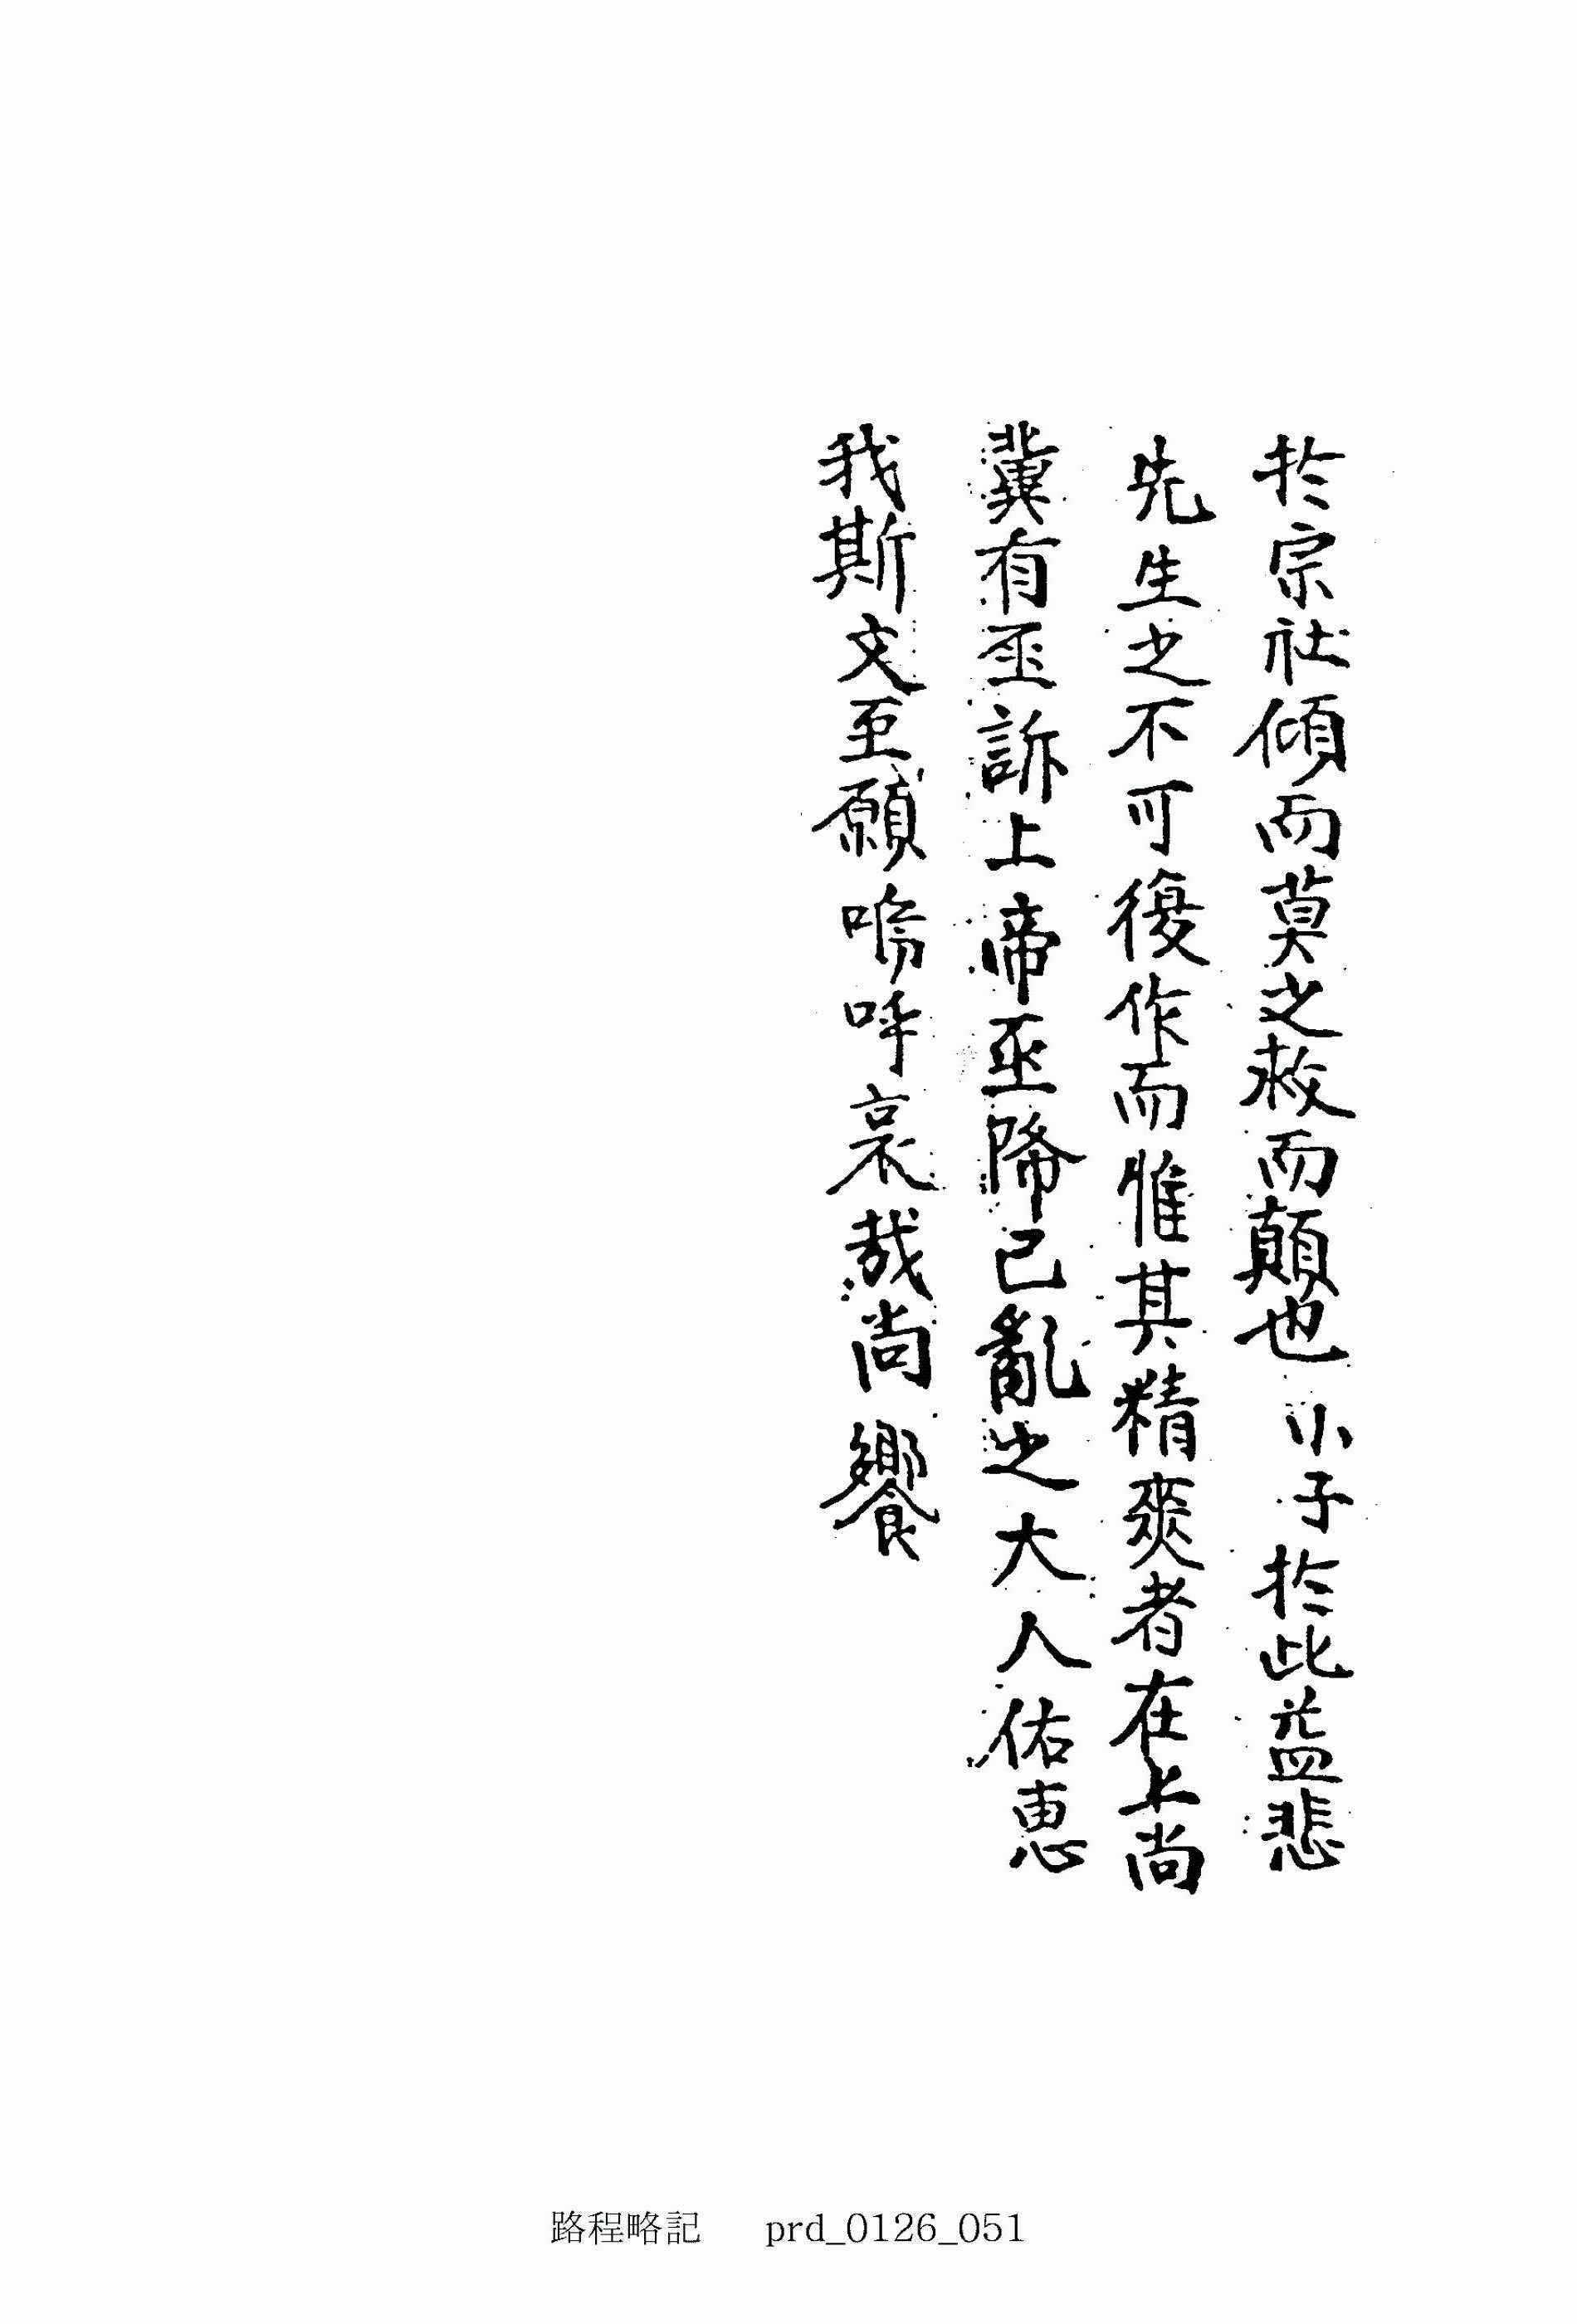 於宗社傾而莫之救而顚也小子於此益悲
先生之不可復作而惟其精爽者在上尚
冀有亟訴上帝亟降已亂之大人佑惠
我斯文至願嗚呼哀哉尚饗
路程略記 prd_0126_051